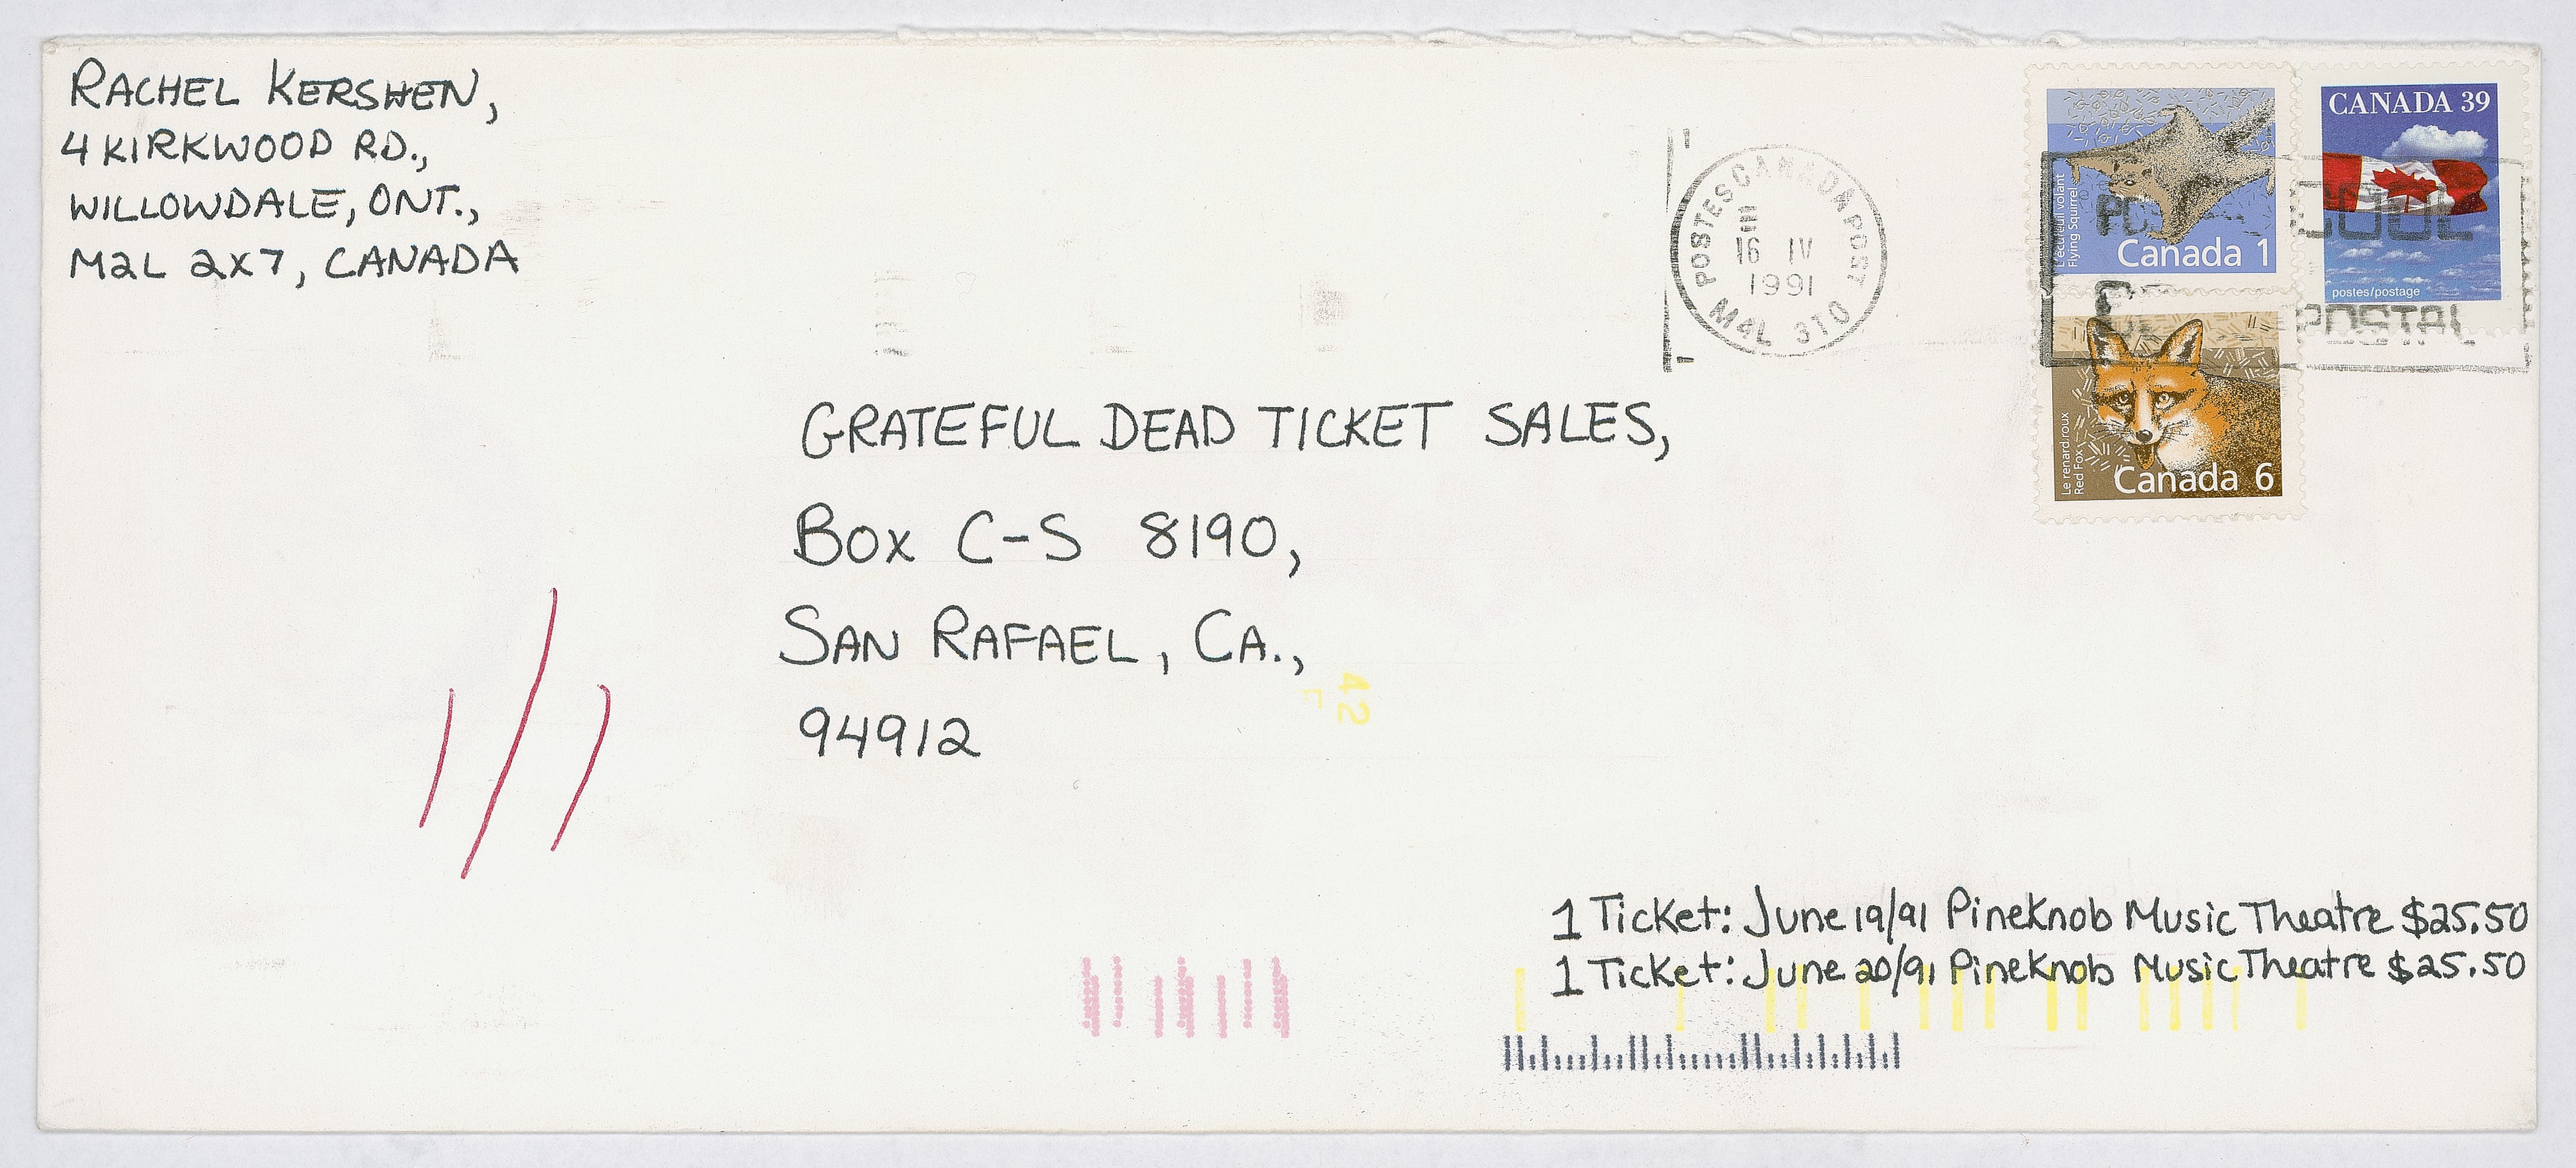 RACHEL KERSHEN,
4 KIRKWOOD RD.,
WILLOWDALE, ONT.,
M2L 2X7, CANADA
POSTES CANADA POST
16 IV
1991
M4L 3T0
L'écureuil volant
Flying Squirrel
Canada 1
CANADA 39
postes/postage
CODE
POSTAL
Le renard roux
Red Fox
Canada 6
GRATEFUL DEAD TICKET SALES,
BOX C-S 8190,
SAN RAFAEL, CA.,
94912
42
1 Ticket: June 19/91 PineKnob Music Theatre $25.50
1 Ticket: June 20/91 PineKnob Music Theatre $25.50